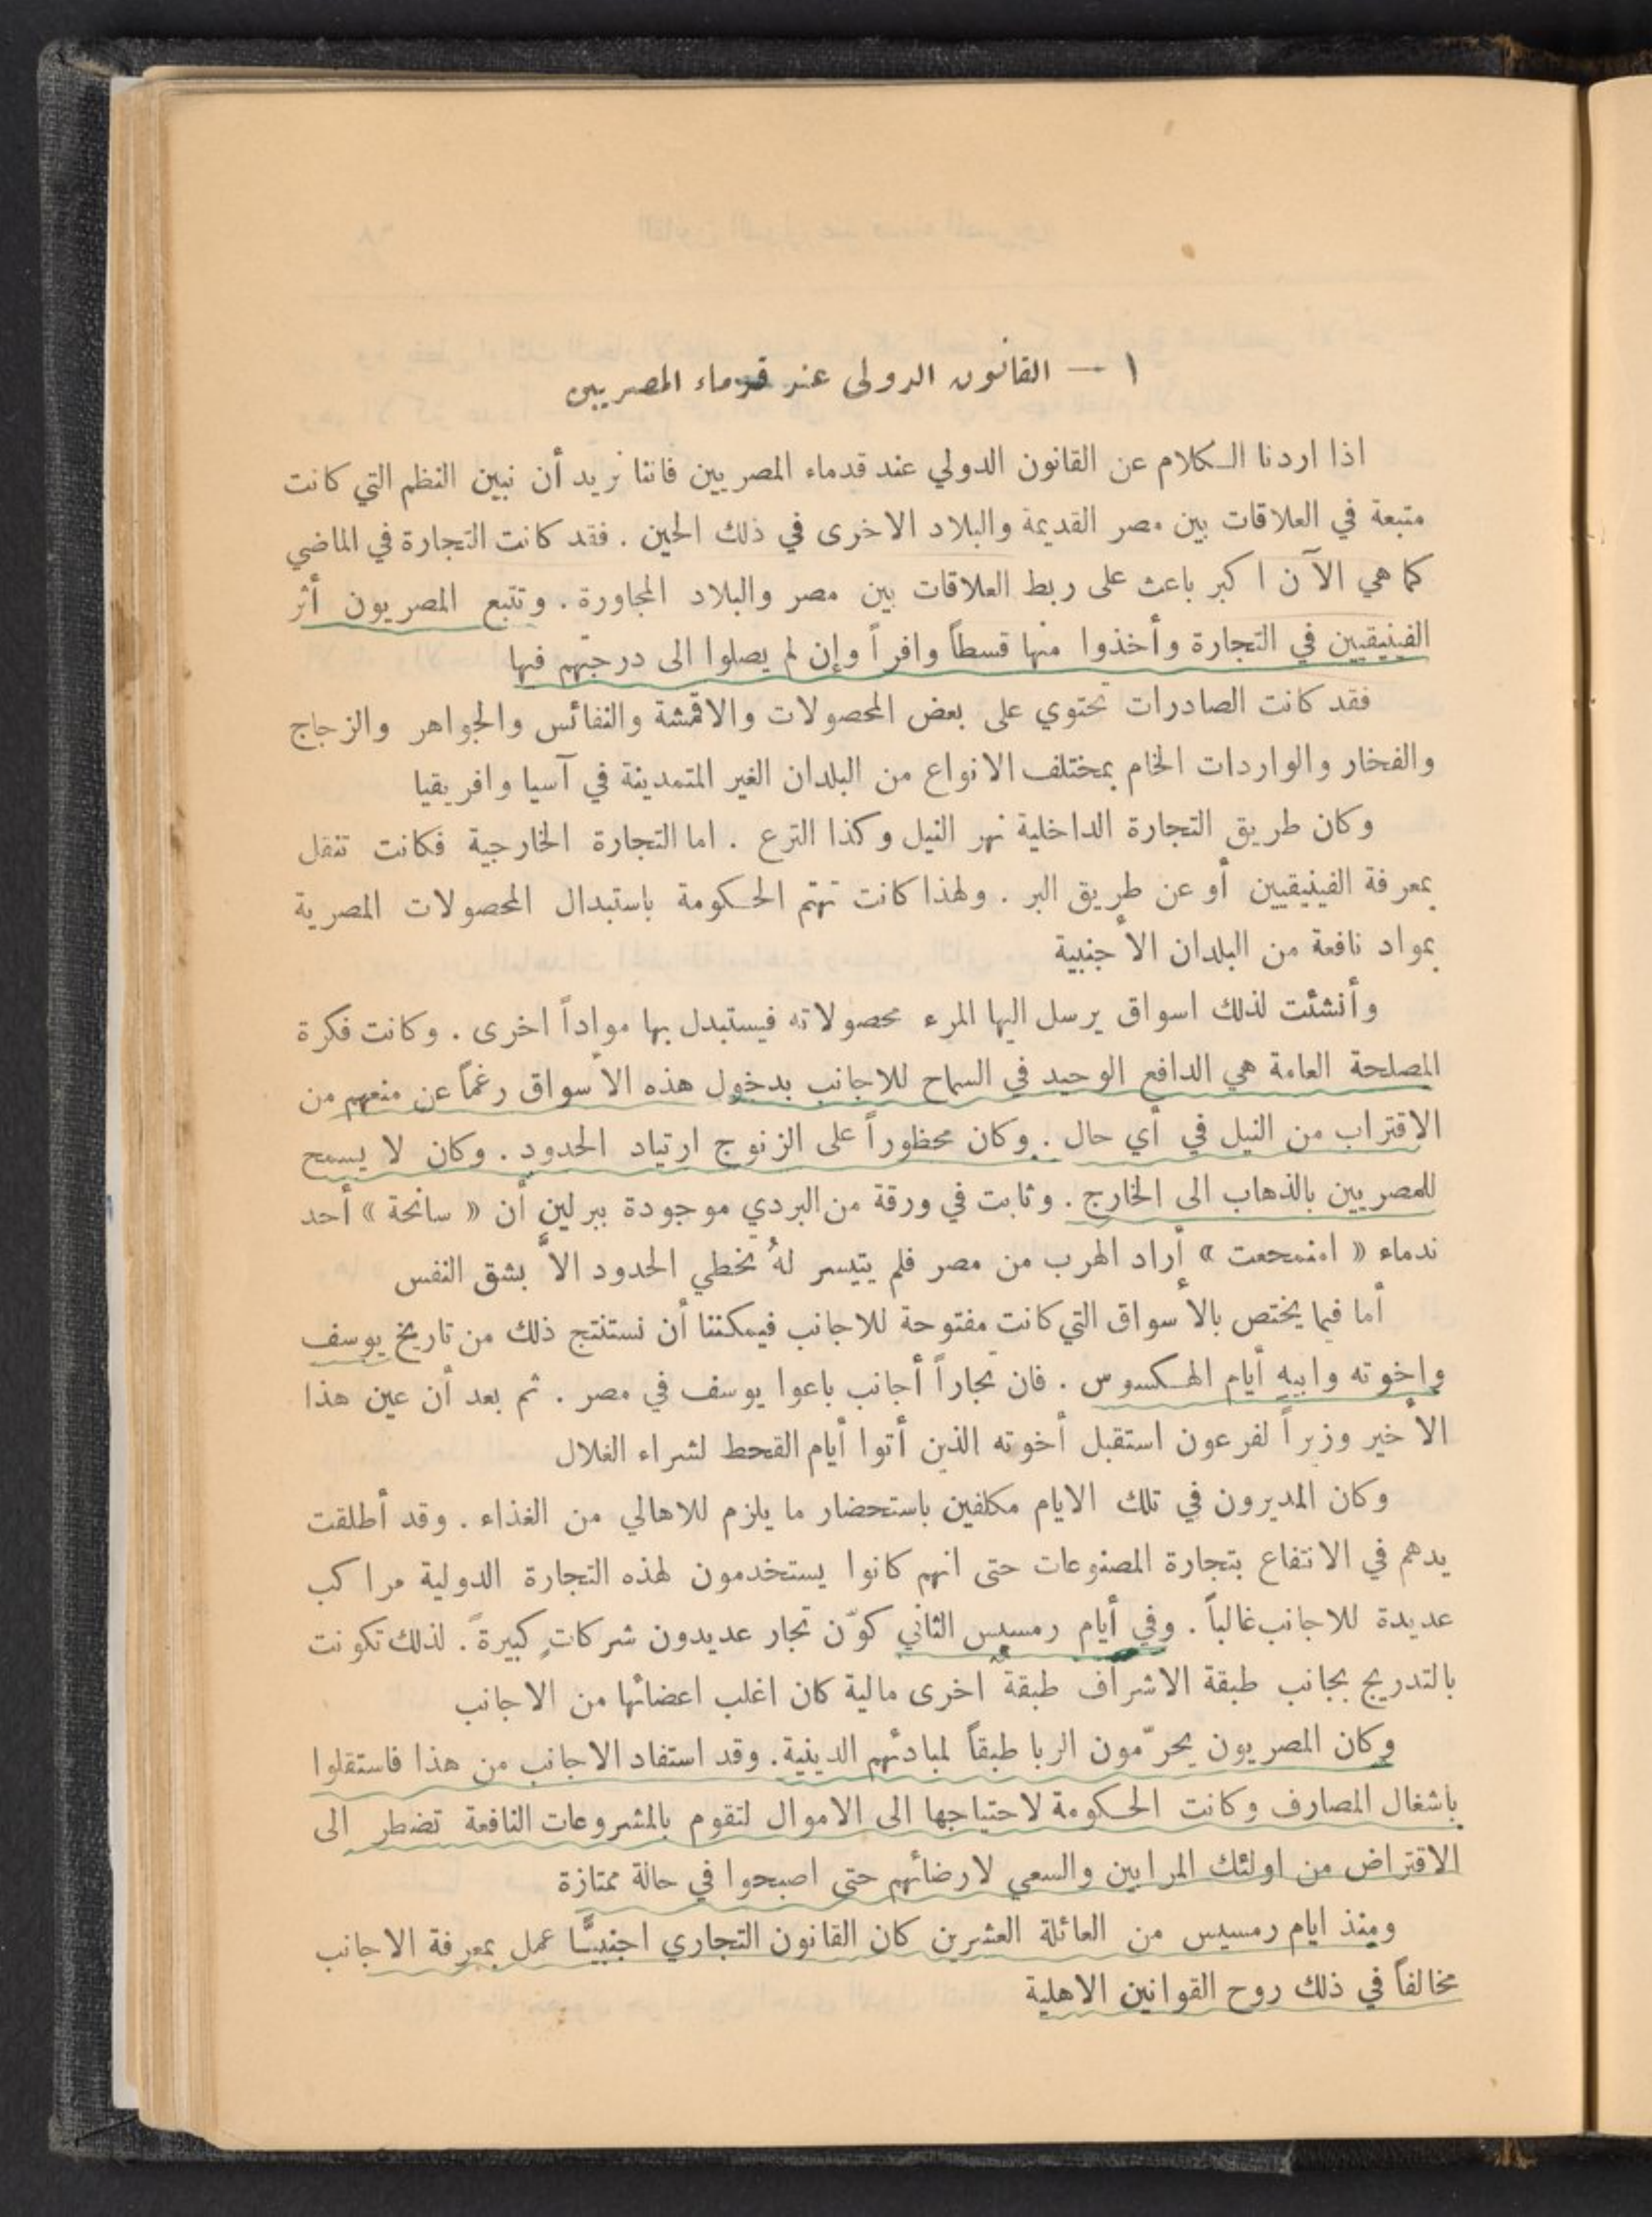 ١ — القانون الدولى عند قدماء المصريين
اذا اردنا الكلام عن القانون الدولي عند قدماء المصريين فاننا نريد أن نبين النظم التي كانت
متبعة في العلاقات بين مصر القديمة والبلاد الاخرى في ذلك الحين . فقد كانت التجارة في الماضي
كما هي الآن اكبر باعث على ربط العلاقات بين مصر والبلاد المجاورة . وتتبع المصريون أثر
الفينيقيين في التجارة وأخذوا منها قسطاً وافراً وإن لم يصلوا الى درجتهم فيها
فقد كانت الصادرات تحتوي على بعض المحصولات والاقمشة والنفائس والجواهر والزجاج
والفخار والواردات الخام بمختلف الانواع من البلدان الغير المتمدينة في آسيا وافريقيا
وكان طريق التجارة الداخلية نهر النيل وكذا الترع . اما التجارة الخارجية فكانت تنقل
بمعرفة الفينيقيين أو عن طريق البر . ولهذا كانت تهتم الحكومة باستبدال المحصولات المصرية
بمواد نافعة من البلدان الأجنبية
وأنشئت لذلك اسواق يرسل اليها المرء محصولاته فيستبدل بها مواداً اخرى . وكانت فكرة
المصلحة العامة هي الدافع الوحيد في السماح للاجانب بدخول هذه الأسواق رغماً عن منعهم من
الاقتراب من النيل في أي حال . وكان محظوراً على الزنوج ارتياد الحدود . وكان لا يسمح
للمصريين بالذهاب الى الخارج . وثابت في ورقة من البردي موجودة ببرلين أن « سانحة » أحد
ندماء « امنمحعت » أراد الهرب من مصر فلم يتيسر لهُ تخطي الحدود الاَّ بشق النفس
أما فيما يختص بالأسواق التي كانت مفتوحة للاجانب فيمكننا أن نستنتج ذلك من تاريخ يوسف
وإخوته وابيه أيام الهكسوس . فان تجاراً أجانب باعوا يوسف في مصر . ثم بعد أن عين هذا
الأخير وزيراً لفرعون استقبل أخوته الذين أتوا أيام القحط لشراء الغلال
وكان المديرون في تلك الايام مكلفين باستحضار ما يلزم للاهالي من الغذاء . وقد أطلقت
يدهم في الانتفاع بتجارة المصنوعات حتى انهم كانوا يستخدمون لهذه التجارة الدولية مراكب
عديدة للاجانب غالباً . وفي أيام رمسيس الثاني كوّن تجار عديدون شركاتٍ كبيرةً . لذلك تكونت
بالتدريج بجانب طبقة الاشراف طبقةٌ اخرى مالية كان اغلب اعضائها من الاجانب
وكان المصريون يحرّمون الربا طبقاً لمبادئهم الدينية . وقد استفاد الاجانب من هذا فاستقلوا
باشغال المصارف وكانت الحكومة لاحتياجها الى الاموال لتقوم بالمشروعات النافعة تضطر الى
الاقتراض من اولئك المرابين والسعي لارضائهم حتى اصبحوا في حالة ممتازة
ومنذ ايام رمسيس من العائلة العشرين كان القانون التجاري اجنبيًّا عمل بمعرفة الاجانب
مخالفاً في ذلك روح القوانين الاهلية